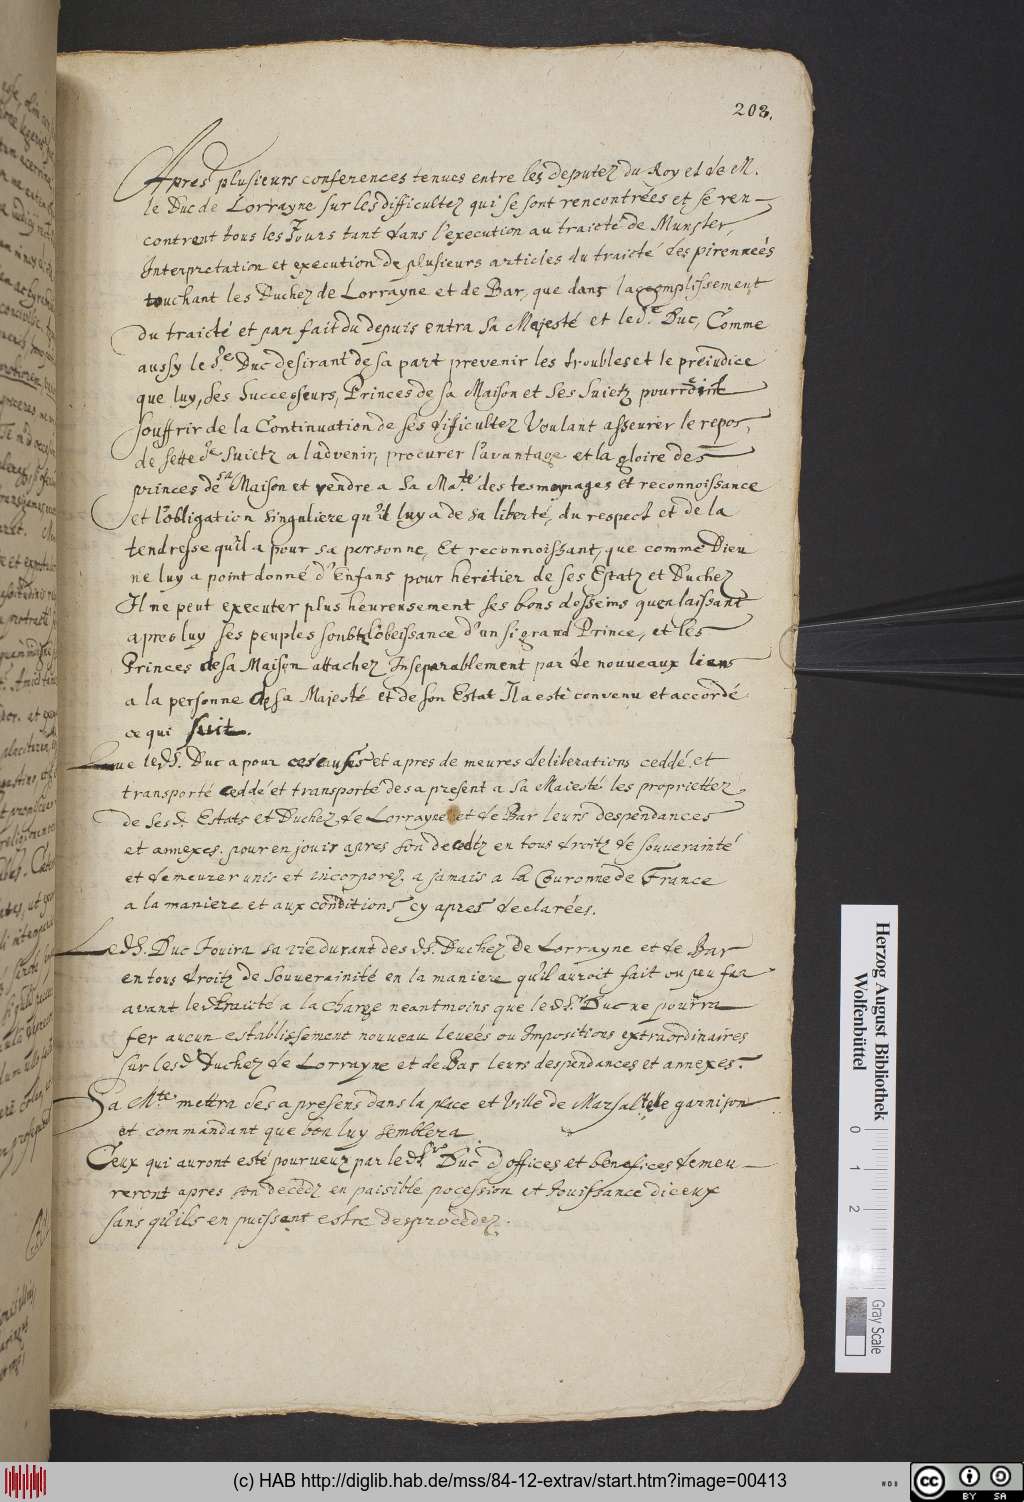 208.
Apres plusieurs conferences tenues entre les deputez du Roy et de M.
le Duc de Lorrayne sur les difficultez qui se sont rencontrées et se ren-
contrent tous les Jours tant dans l'execution au traicté de Munster,
Interpretation et execution de plusieurs articles du traicté des pirennées
touchant les Duchez de Lorrayne et de Bar, que dans l'accomplissement
du traicté et par fait du depuis entra sa Majesté et led.r Duc, Comme
aussy le S.r Duc desirant de sa part prevenir les troubles et le preiudice
que luy, ses Successeurs, Princes de sa Maison et ses Suietz pourroint
souffrir de la Continuation de ses difficultez Voulant asseurer le repos,
de sette Suietz a l'advenir, procurer l'avantage et la gloire des
princes de sa Maison et rendre a sa Ma.te des tesmoynages et reconnoissance
et l'obligation singuliere qu'il luy a de sa liberté, du respect et de la
tendresse qu'il a pour sa personne, Et reconnoissant, que comme Dieu
ne luy a point donné d'Enfans pour heritier de ses Estatz et Duchez
Il ne peut executer plus heureusement ses bons desseims qu'en laissant
apres luy ses peuples soubz l'obeissance d'un si grand Prince, et les
Princes de sa Maison attachez Inseparablement par de nouveaux liens
a la personne de sa Majesté et de son Estat Il a esté convenu et accordé
ce qui suit.
Que led.S. Duc a pour ces causes et apres de meures deliberations ceddé, et
transporté ceddé et transporté des a present a sa Maiesté les propriettez
de ses d. Estats et Duchez de Lorrayne et de Bar leurs despendances
et annexes. pour en jouir apres son decedz en tous droitz de souverainté
et demeurer unis et incorporez a jamais a la Couronne de France
a la maniere et aux conditions cy apres declarées.
Led.S. Duc Jouira sa vie durant des d.s Duchez de Lorrayne et de Bar
en tous droitz de Souverainité en la maniere qu'il auroit fait ou peu fer
avant led. traicté a la charge neantmoins que led.S.r Duc ne pourra
fer aucun establissement nouveau levées ou Impositions extraordinaires
sur les d. Duchez de Lorrayne et de Bar leurs despendances et annexes.
Sa M.te mettra des a presens dans la place et Ville de Marsal telle garnison
et commandant que bon luy semblera
Ceux qui auront esté pourveuz par led.S.r Duc d'offices et benefices demeu-
reront apres son decedz en paisible pocession et Jouissance diceux
sans qu'ils en puissent estre desprocedez.
Herzog August Bibliothek
Wolfenbüttel
0 1 2
Gray Scale
(c) HAB http://diglib.hab.de/mss/84-12-extrav/start.htm?image=00413
cc BY SA